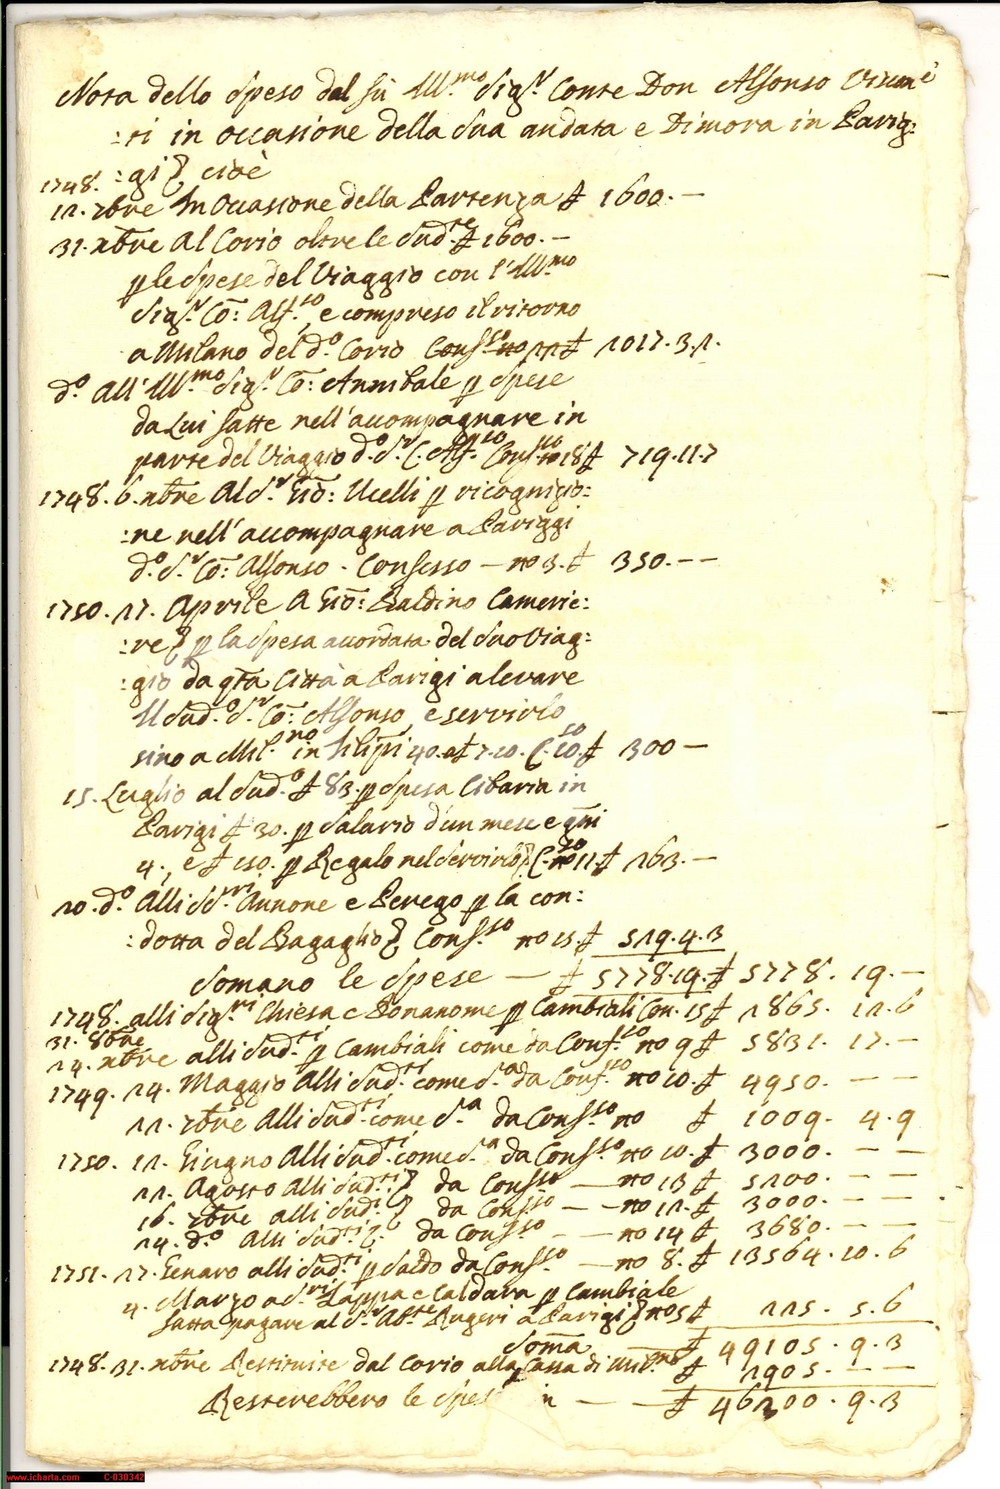 Nota delle Spese dal fù Ill.mo Sig.r Conte Don Alfonso Viscon
:ti in occasione della sua andata e Dimora in Parig:
:gi cioè
1748.
12. 7bre In Occasione della Partenza £ 1600. —
31. Xbre Al Corio oltre le sud.te £ 1600. —
p le spese del Viaggio con l'Ill.mo
Sig.r Co: Alf.so, e compreso il ritorno
a Milano del d.o Corio Conf.so no 22 £ 2027. 3. 2.
d.o All'Ill.mo Sig.r Co: Annibale p spese
da Lui fatte nell'accompagnare in
parte del Viaggio d.o S.r C. Alf.so Conf.so no 18 £ 719. 11. 7
1748. 6. Xbre Al S.r Gio: Ucelli p ricognizio:
:ne nell'accompagnare a Pariggi
d.o S.r Co: Alfonso - Confesso — no 3. £ 350. — —
1750. 27. Aprile A Gio: Baldino Camerie:
:re p la spesa accordata del suo Viag:
:gio da q.ta Città a Parigi a levare
Il Sud.o S.r Co: Alfonso, e servirlo
sino a Mil.no in Filipi 40. a £ 7. 10. C.so 10. £ 300 —
15. Luglio al Sud.o £ 83. p spesa Cibaria in
Parigi £ 30. p Salario d'un mese e gni
4., e £ 150. p Regalo nel servirlo C.so no 11 £ 263. —
20. d.o Alli SS.ri Annone e Perego p la con:
:dotta del Bagaglio Conf.so no 15 £ 529. 4. 3
Somano le Spese — £ 5778. 19. £ 5778. 19. —
1748. alli Sig.ri Chiesa e Bonanome p Cambiali Con. 15 £ 2865. 12. 6
31. 8bre
24. Xbre alli Sud.ti p Cambiali come da Conf.so no 9 £ 5831. 17. —
1749. 24. Maggio Alli Sud.ti come s.a da Conf.so no 10. £ 4950. — —
22. 7bre Alli Sud.ti come s.a da Conf.so no £ 1009. 4. 9
1750. 12. Giugno Alli Sud.ti come s.a da Conf.so no 10. £ 3000. — —
22. Agosto Alli Sud.ti da Conf.so — no 13 £ 5200. — —
16. 7bre alli Sud.ti da Conf.so — no 12. £ 3000. — —
24. d.o Alli Sud.ti da Conf.so — no 14 £ 3680. — —
1751. 27. Genaro alli Sud.ti p Saldo da Conf.so — no 8. £ 13564. 10. 6
4. Marzo a S.ri Zappa e Caldara p Cambiale
fatta pagare al S.r Ab.te Rugeri a Parigi no 5 £ 225. 5. 6
Soma £ 49105. 9. 3
1748. 31. Xbre Restituite dal Corio alla Cassa di Mil.no £ 2905. — —
Resterebbero le Spes in — — £ 46200. 9. 3
www.icharta.com C-030342